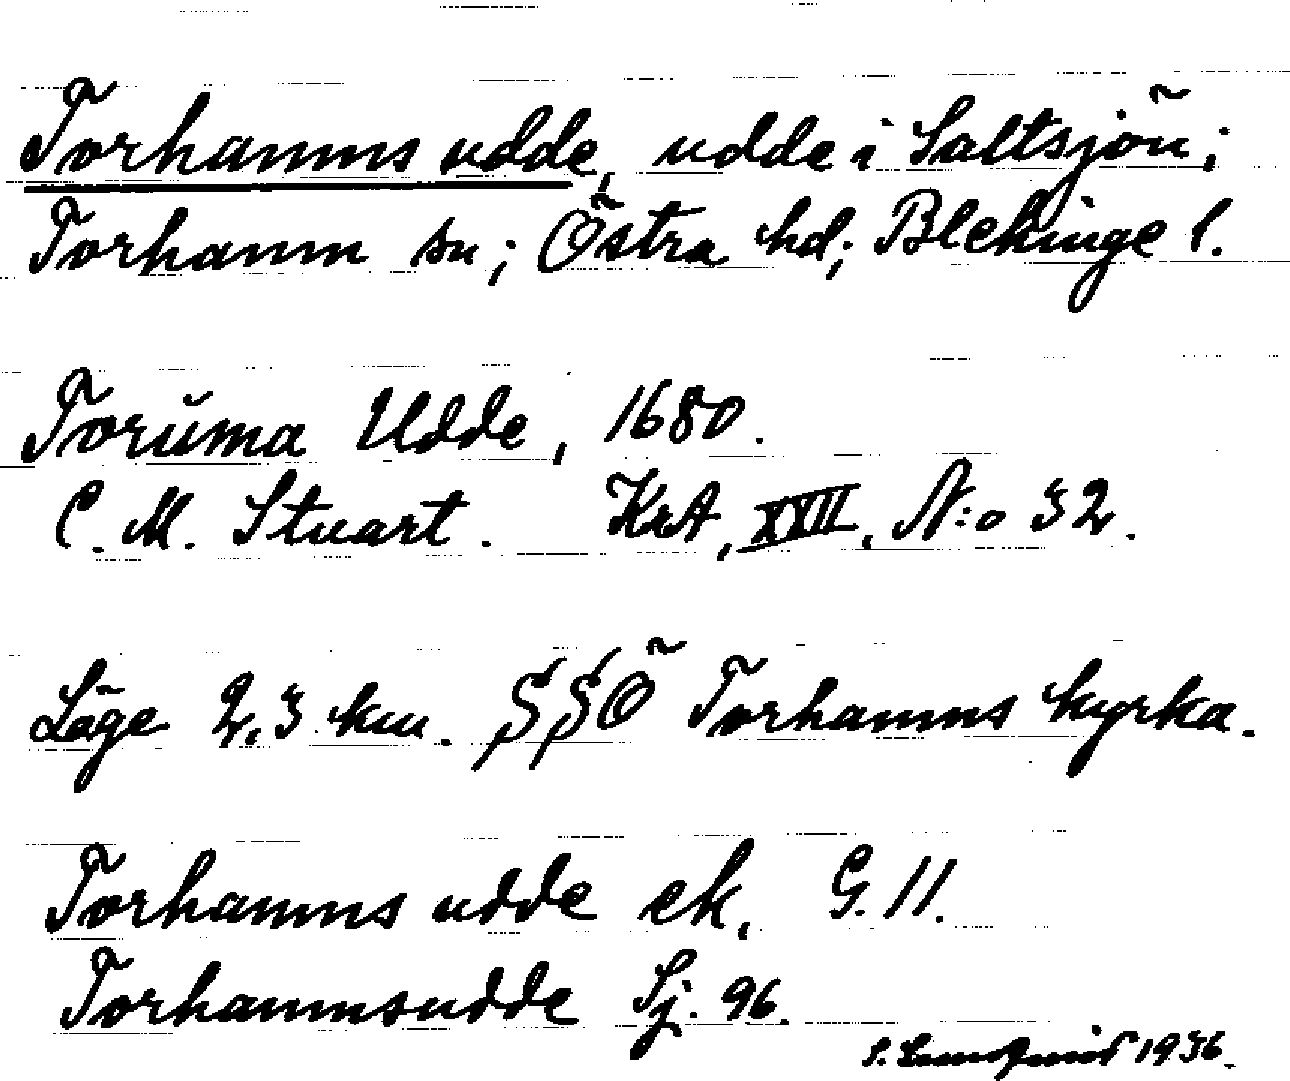 Torhamns udde, udde i Saltsjön;
Torhamn sn; Östra hd; Blekinge l.
Torŭma Udde, 1680.
C. M. Stuart. KrA, XVII, N:o 32.
Läge 2,3 km. SSÖ Torhamns kyrka.
Torhamns udde ek, G. 11.
Torhamnsudde Sj. 96.
1936.